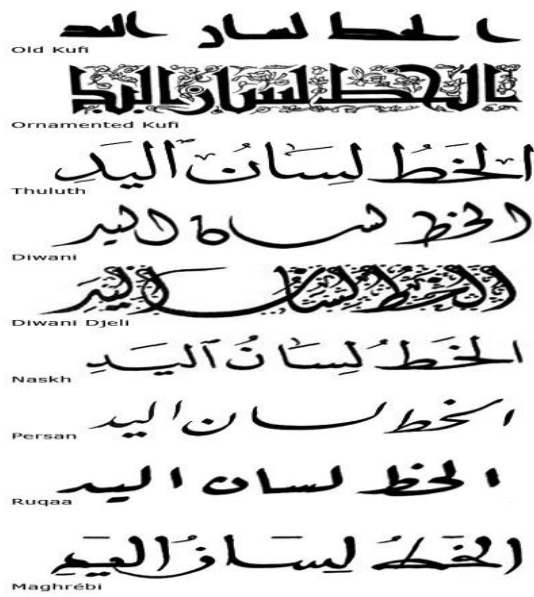 الخط لسان اليد
Old Kufi
الخط لسان اليد
Ornamented Kufi
الخَطُّ لِسَانُ اليَدِ
Thuluth
الخط لسان اليد
Diwani
الخط لسان اليد
Diwani Djeli
الخَطُ لِسَانُ اليَدِ
Naskh
الخط لسان اليد
Persan
الخط لسان اليد
Ruqaa
الخَطُّ لِسَانُ اليَدِ
Maghrébi